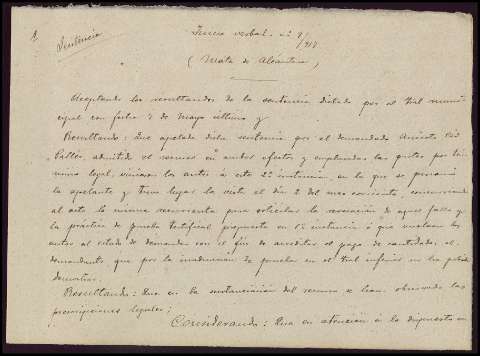 Sentencia
Juicio verbal nº 7/918
(Mata de Alcántara)
Aceptando los resultandos de la sentencia dictada por el Tbal muni-
cipal con fecha 7 de Mayo último y
Resultando: Que apelada dicha sentencia por el demandado Aniceto
admitido el recurso en ambos efectos y emplazadas las partes por tér-
mino legal, vinieron los autos a esta 2ª instancia, en la que se personó
la apelante y tuvo lugar la vista el día 2 del mes corriente, concurriendo
al acto la misma recurrente para solicitar la revocación de aquel fallo y
la práctica de prueba testifical propuesta en 1ª instancia ó que vuelvan los
autos al estado de demanda con el fin de acreditar el pago de cantidades al
demandante que por la inadmisión de prueba en el Tbal inferior no ha podido
demostrar.
Resultando: Que en la sustanciación del recurso se han observado las
prescripciones legales;
Considerando: Que en atención á lo dispuesto en